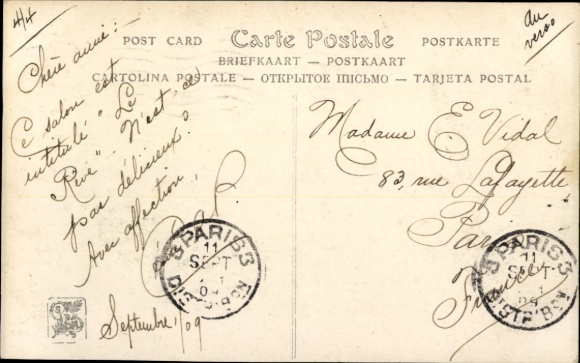 4/4
au
verso
POST CARD Carte Postale POSTKARTE
BRIEFKAART — POSTKAART
CARTOLINA POSTALE — ОТКРЫТОЕ ПІСЬМО — TARJETA POSTAL
Chère amie:
Ce salon est
intitulé "Le
Rêve" N'est-ce
pas délicieux?
Avec affection,
Septembre 1/09
Madame E Vidal
83, rue Lafayette
Paris
France
PARIS 3
11
SEPT
09
DISTRIBON
3 PARIS 3
11
SEPT
09
DISTRIBON